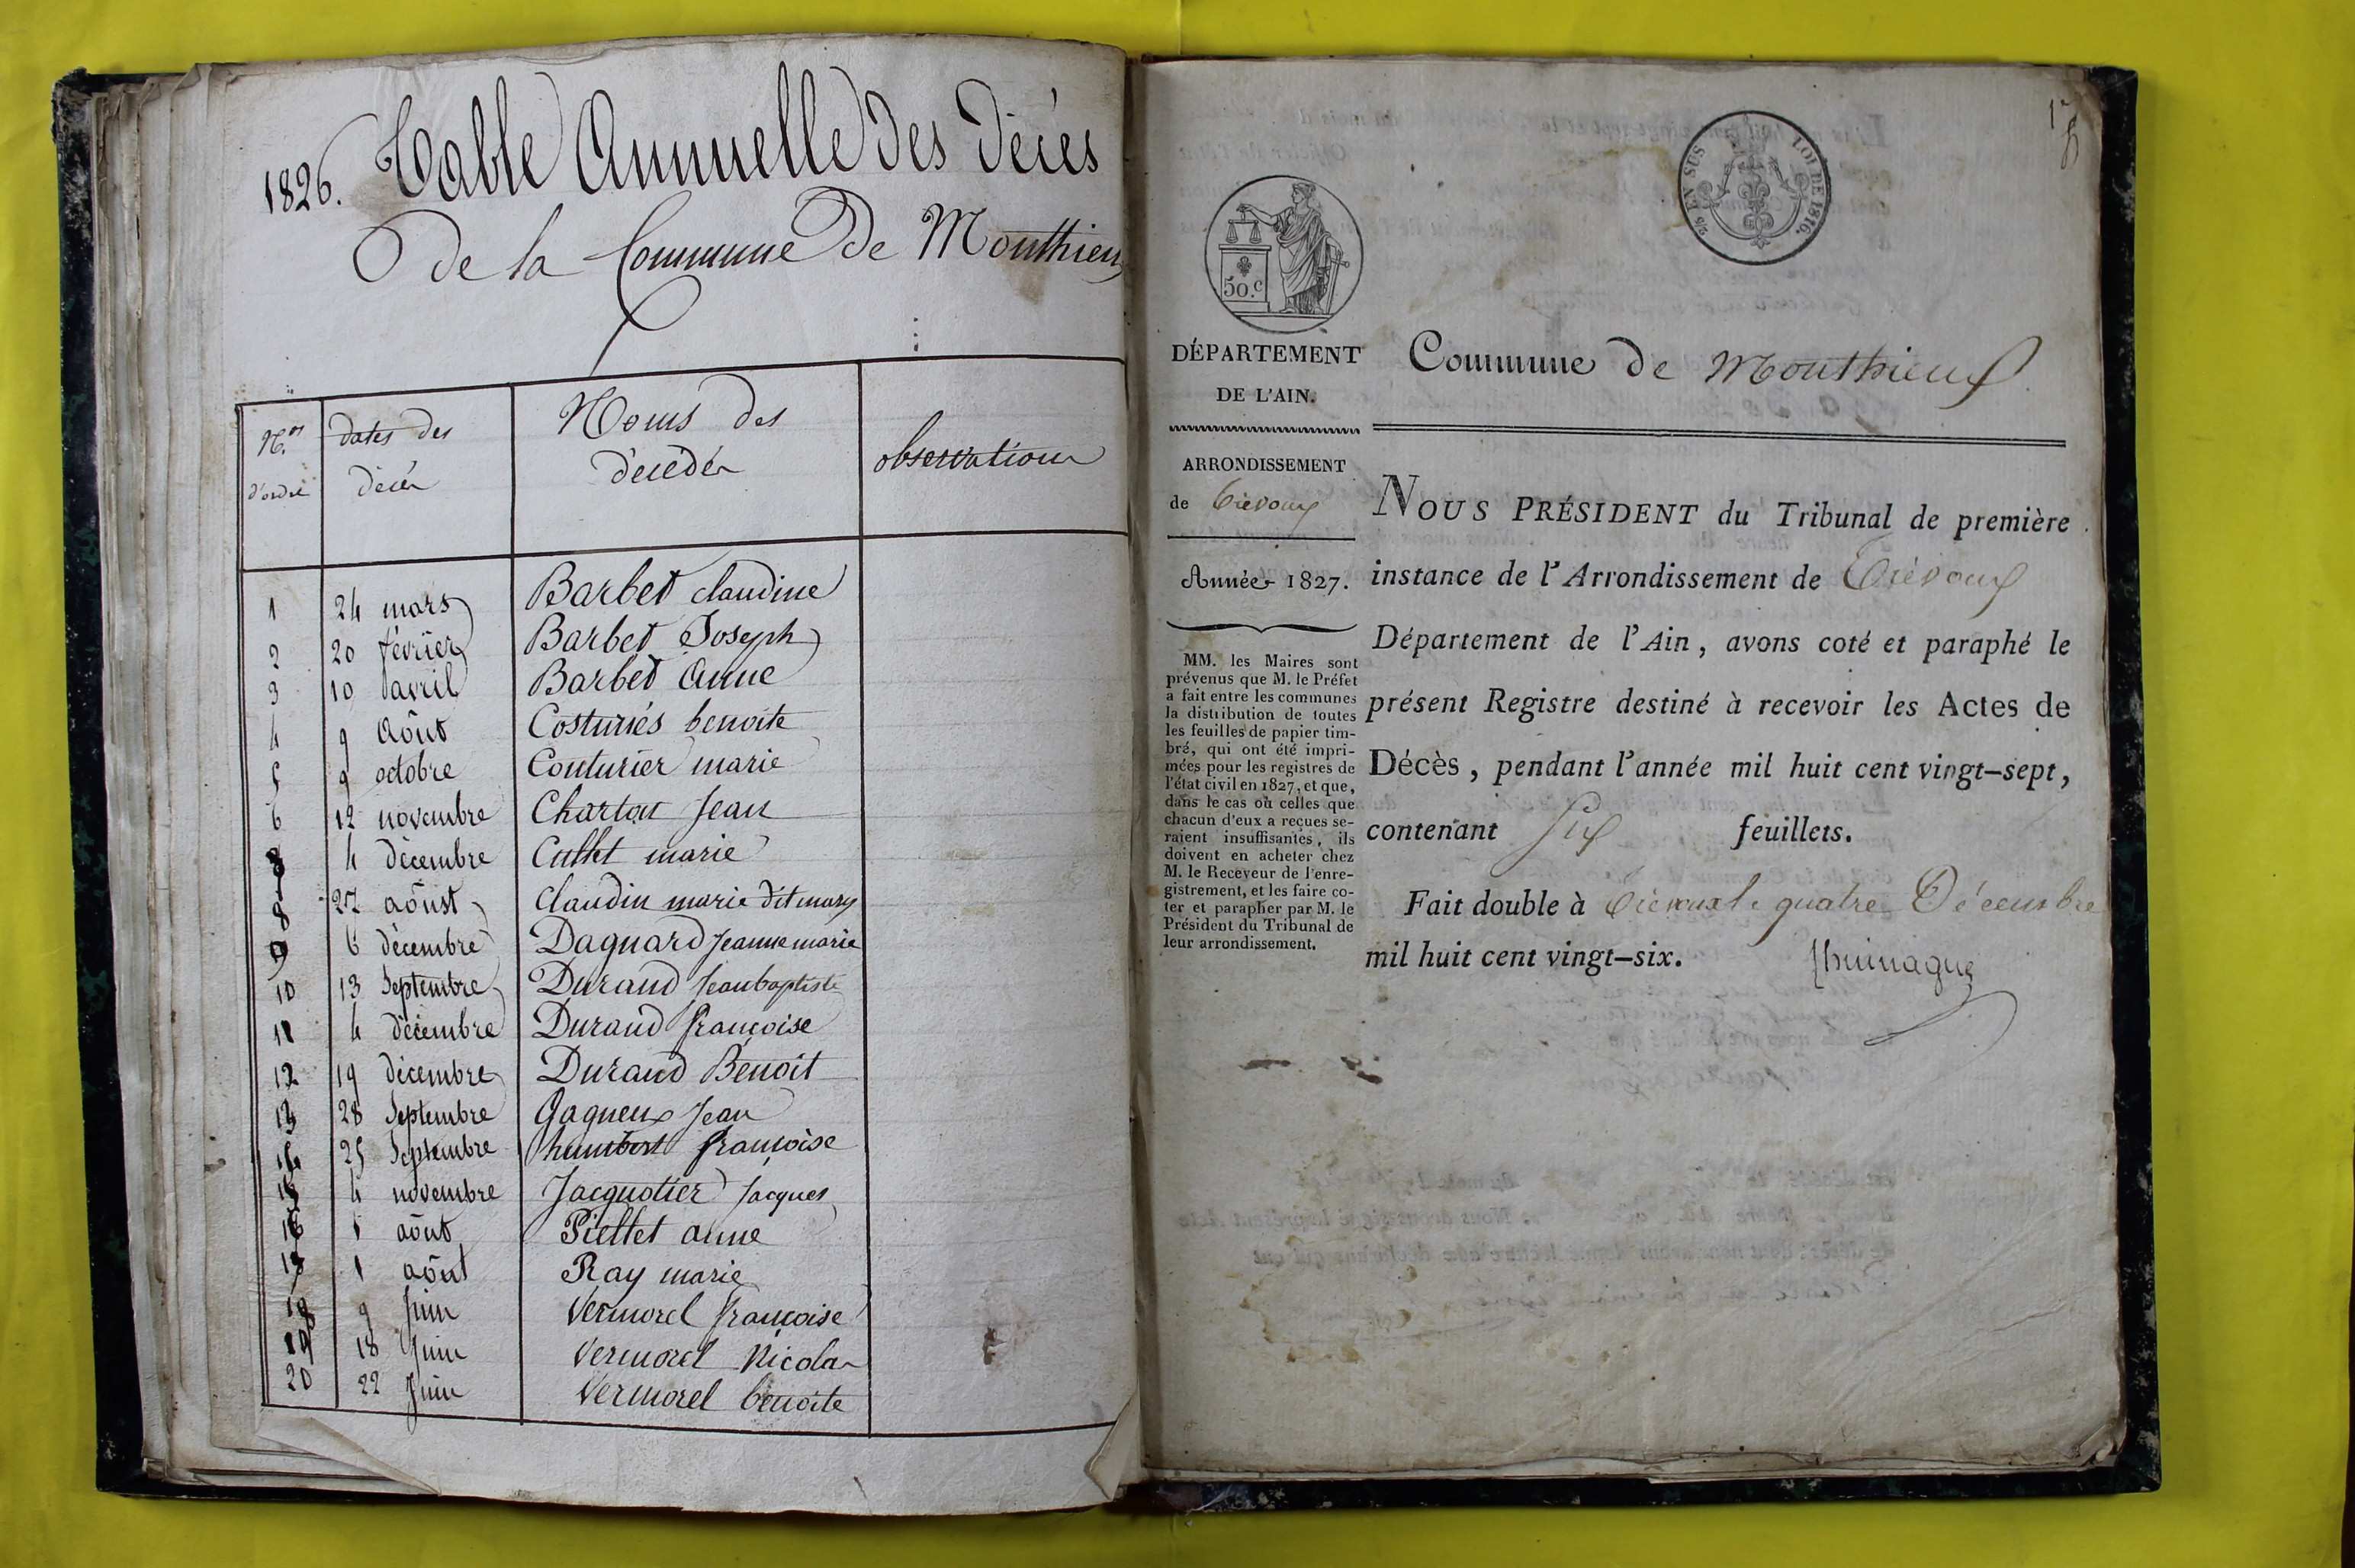 1826. Table Annuelle des décés
De la Commune de Monthieux
N.os d'ordre
dates des décés
Noms des décédés
observations
1 24 mars Barbet claudine
2 20 février Barbet Joseph
3 10 avril Barbet Anne
4 9 Août Costuriés benoite
5 9 octobre Couturier marie
6 12 novembre Charton Jean
7 4 décembre Cullet marie
8 27 aôust Claudin marie dit mary
9 6 décembre Daguard Jeanne marie
10 13 Septembre Durand Jean baptiste
11 4 décembre Durand françoise
12 19 décembre Durand Benoit
13 28 Septembre Gagneux Jean
14 25 Septembre humbert françoise
15 4 novembre Jacquotier Jacques
16 1 aôut Piellet anne
17 1 aôut Ray marie
18 9 Juin Vermorel françoise
19 18 Juin Vermorel Nicolas
20 22 Juin Vermorel benoite
2/10 EN SUS
LOI DE 1816.
50.c
DÉPARTEMENT
DE L'AIN.
ARRONDISSEMENT
de Trévoux
Année 1827.
MM. les Maires sont
prévenus que M. le Préfet
a fait entre les communes
la distribution de toutes
les feuilles de papier tim-
bré, qui ont été impri-
mées pour les registres de
l'état civil en 1827, et que,
dans le cas où celles que
chacun d'eux a reçues se-
raient insuffisantes, ils
doivent en acheter chez
M. le Receveur de l'enre-
gistrement, et les faire co-
ter et parapher par M. le
Président du Tribunal de
leur arrondissement.
Commune de Monthieux
NOUS PRÉSIDENT du Tribunal de première
instance de l'Arrondissement de Trévoux
Département de l'Ain, avons coté et paraphé le
présent Registre destiné à recevoir les Actes de
Décès, pendant l'année mil huit cent vingt-sept,
contenant Six feuillets.
Fait double à Trévoux le quatre Décembre
mil huit cent vingt-six.